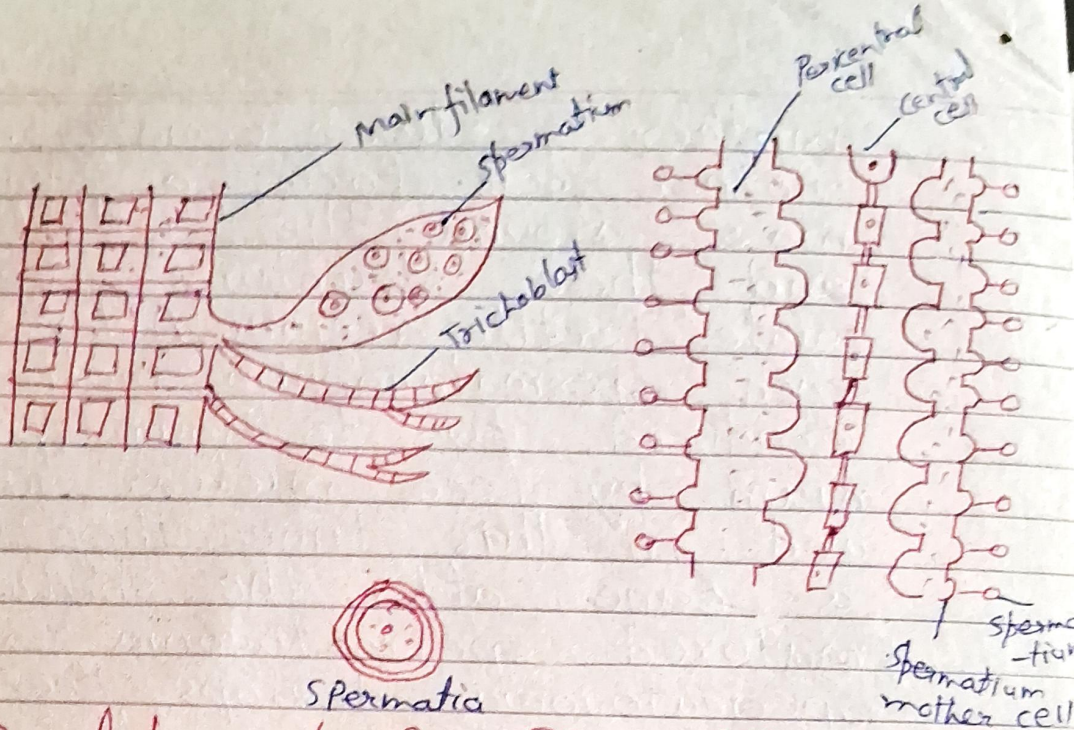 Main filament
spermatium
Trichoblast
Pericentral
cell
central
cell
sperma
-tium
Spermatium
mother cell
Spermatia